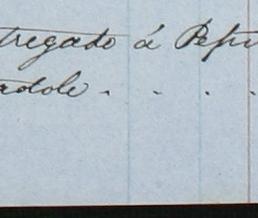 tregado á Pefu
adole . . . .